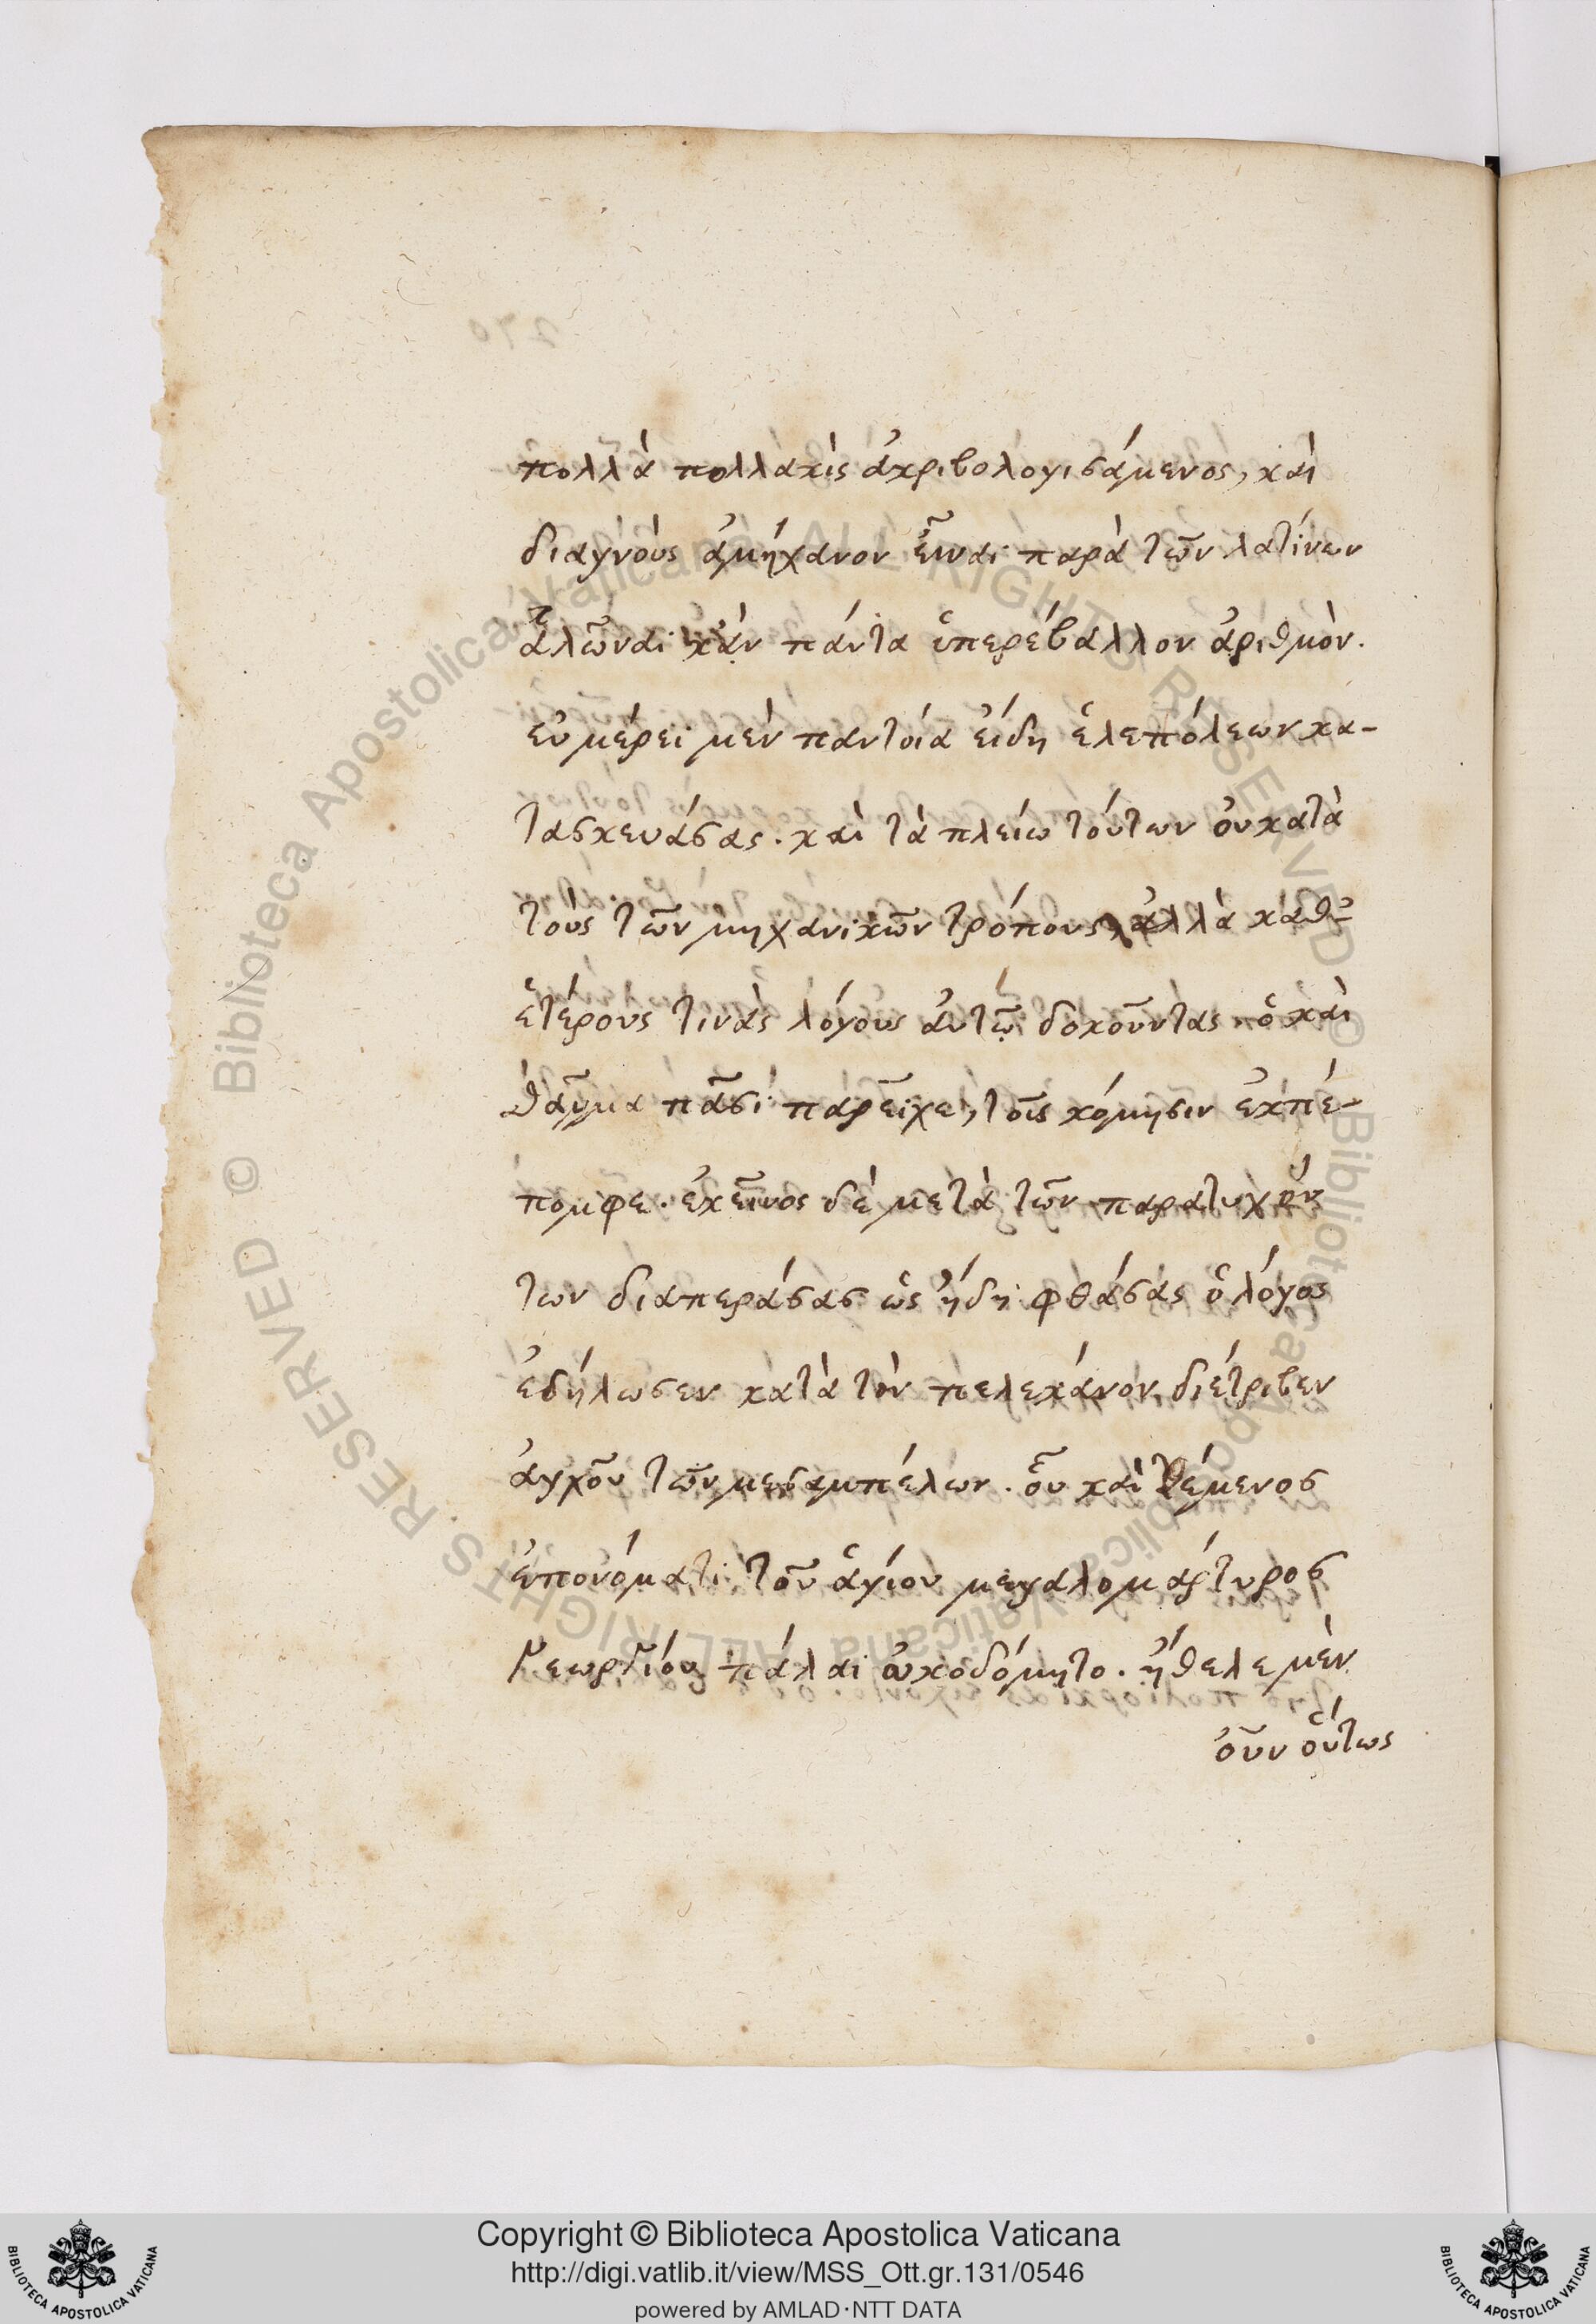 πολλὰ πολλακὶς ἀκριβολογισάμενος, καὶ
διαγνοὺς ἀμήχανον εἶναι παρὰ τῶν λατίνων
ἁλῶναι κἀν πάντα ὑπερέβαλλον ἀριθμὸν.
εν μέρει μὲν παντοία εἴδη ἑλεπόλεων κα-
τασκευάσας. καὶ τὰ πλείω τούτων οὐ κατὰ
τοὺς τῶν μηχανικῶν τρόπους, ἀλλὰ καθ'
ἑτέρους τινὰς λόγους ἀυτῶ δοκοῦντας. ὃ καὶ
θαῦμα πᾶσι παρεῖχε, τοῖς κόμησιν ἐκπέ-
πομφε. ἐκεῖνος δὲ μετὰ τῶν παρατυχόν
των διαπεράσας ὡς ἤδη φθάσας ὁ λόγος
ἐδήλωσεν κατὰ τὸν πελεκάνον διέτριβεν
ἀγχοῦ τῶν μεσαμπέλων. οὗ καὶ τέμενος
ἐπονόματι τοῦ ἁγίου μεγαλομάρτυρος
Γεωργίου πάλαι ὠκοδόμητο. ἤθελε μὲν
οὖν οὕτως
Copyright © Biblioteca Apostolica Vaticana
http://digi.vatlib.it/view/MSS_Ott.gr.131/0546
powered by AMLAD·NTT DATA